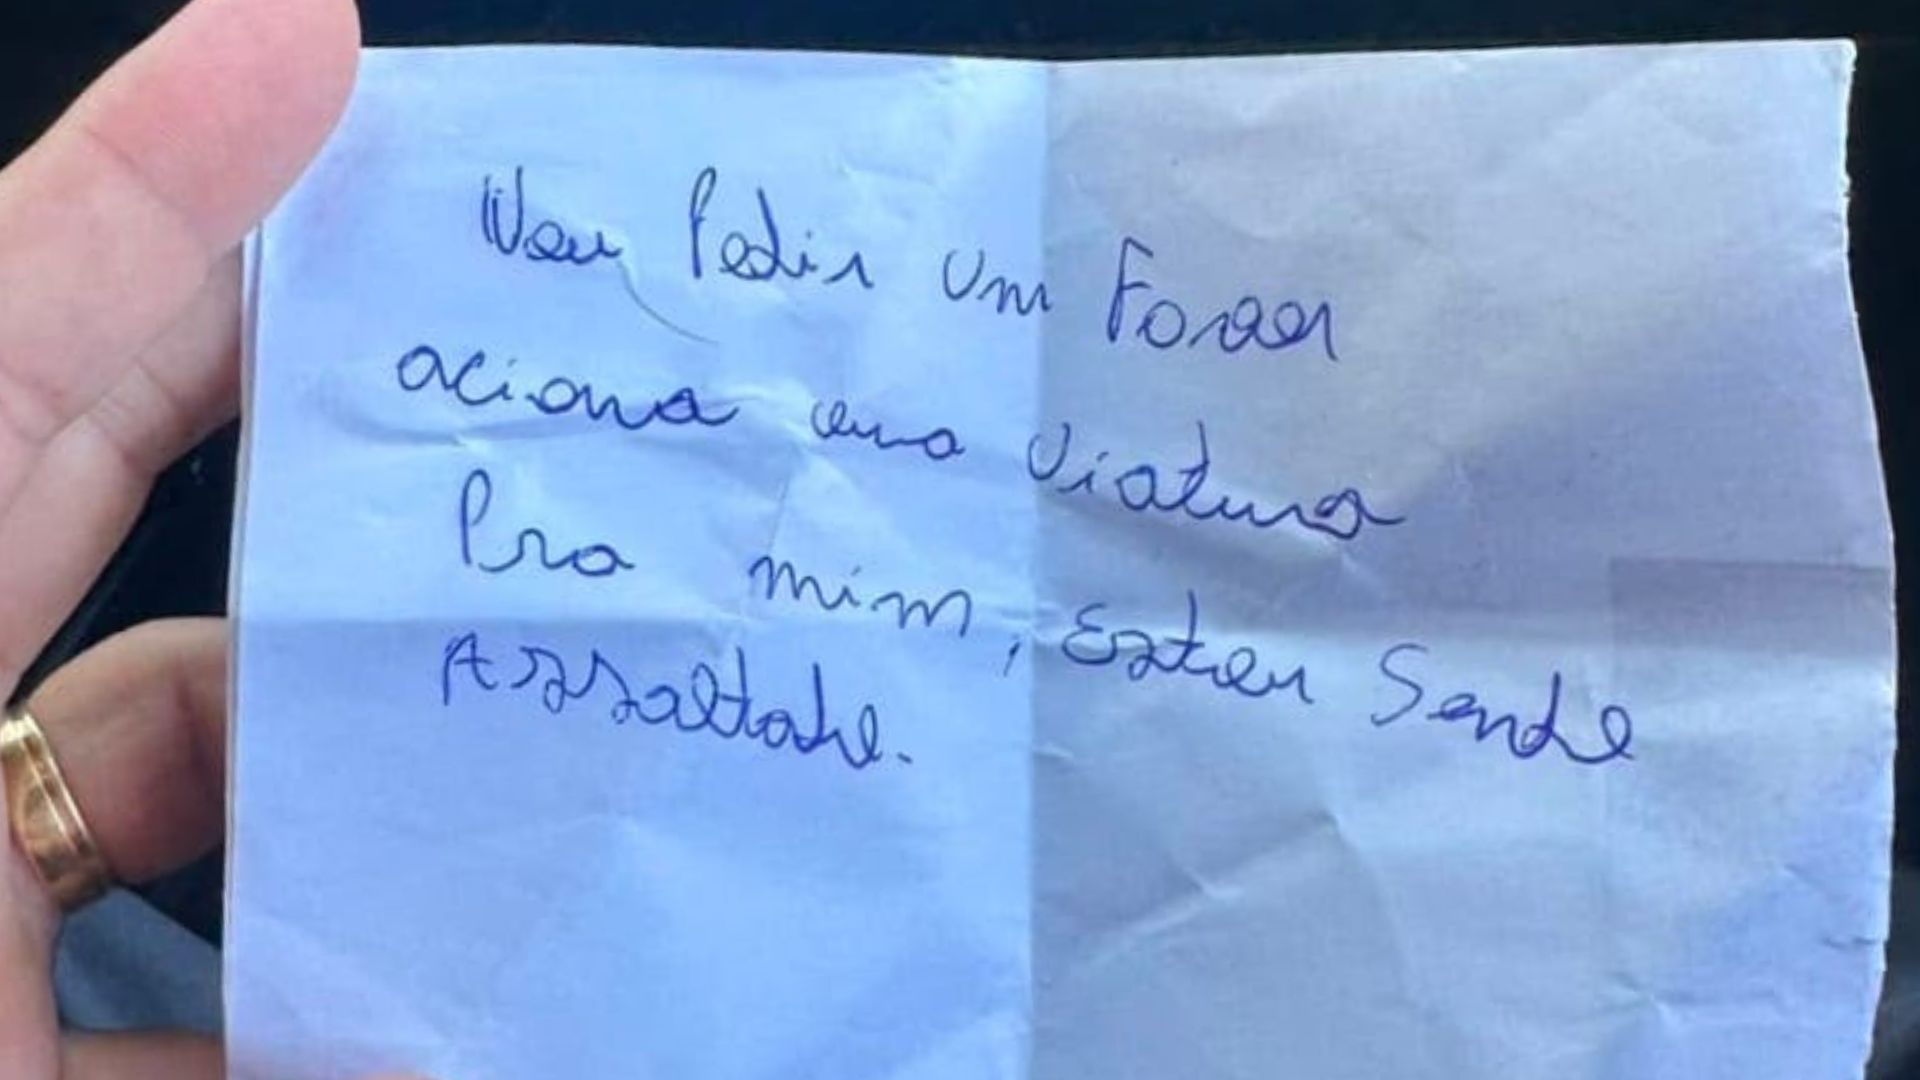 Vou Pedir um Favor
aciona uma viatura
Pra mim, Estou Sendo
Assaltado.